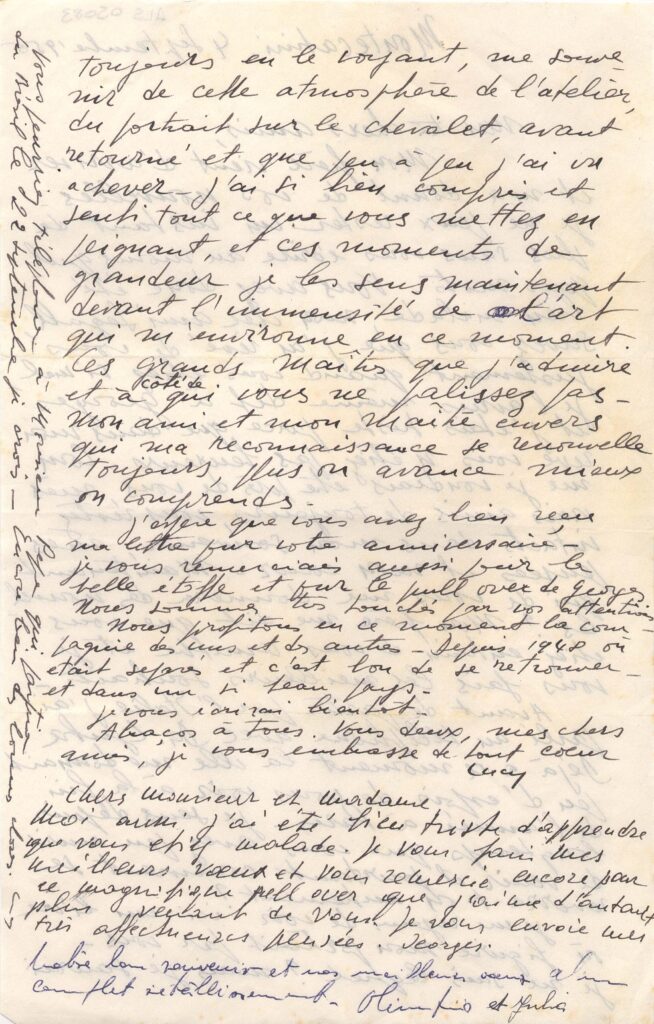 toujours en le voyant, me souve-
nir de cette atmosphère de l'atelier,
du portrait sur le chevalet, avant
retourné et que peu à peu j'ai vu
achever - j'ai si bien compris et
senti tout ce que vous mettez en
peignant, et ces moments de
grandeur je les sens maintenant
devant l'immensité de l'art
qui m'environne en ce moment.
Ces grands maîtres que j'admire
et à côté de qui vous ne palissez pas -
Mon ami et mon maître envers
qui ma reconnaissance se renouvelle
toujours plus on avance mieux
on comprends.
j'espère que vous avez bien reçu
ma lettre pur votre anniversaire -
je vous remerciais aussi pur la
belle étoffe et pur le pull over de Georges
Nous sommes très touchés par vos attentions
Nous profitons en ce moment la com-
pagnie des uns et des autres - Depuis 1948 on
était séprés et c'est bon de se retrouver -
et dans un si beau pays -
je vous écrirai bientôt -
Abraços à tous. Vous deux, mes chers
amis, je vous embrasse de tout coeur
Lucy
Chers monsieur et madame
Moi aussi j'ai été bien triste d'apprendre
que vous etiez malade. je vous fais mes
meilleurs voeux et vous remercie encore par
ce magnifique pull over que j'aime d'autant
plus venant de vous. je vous envoie mes
très affectueuses pensées. Georges.
bon souvenir et nos meilleurs voeux d'un
complet rétablissement - Olimpio et Julia
Vous pourriez téléphoner à Monsieur Pepe qui partira
du Brésil le 22 septembre je crois - Encore bien des
ALS 03083
Montecatini 4 Septembre